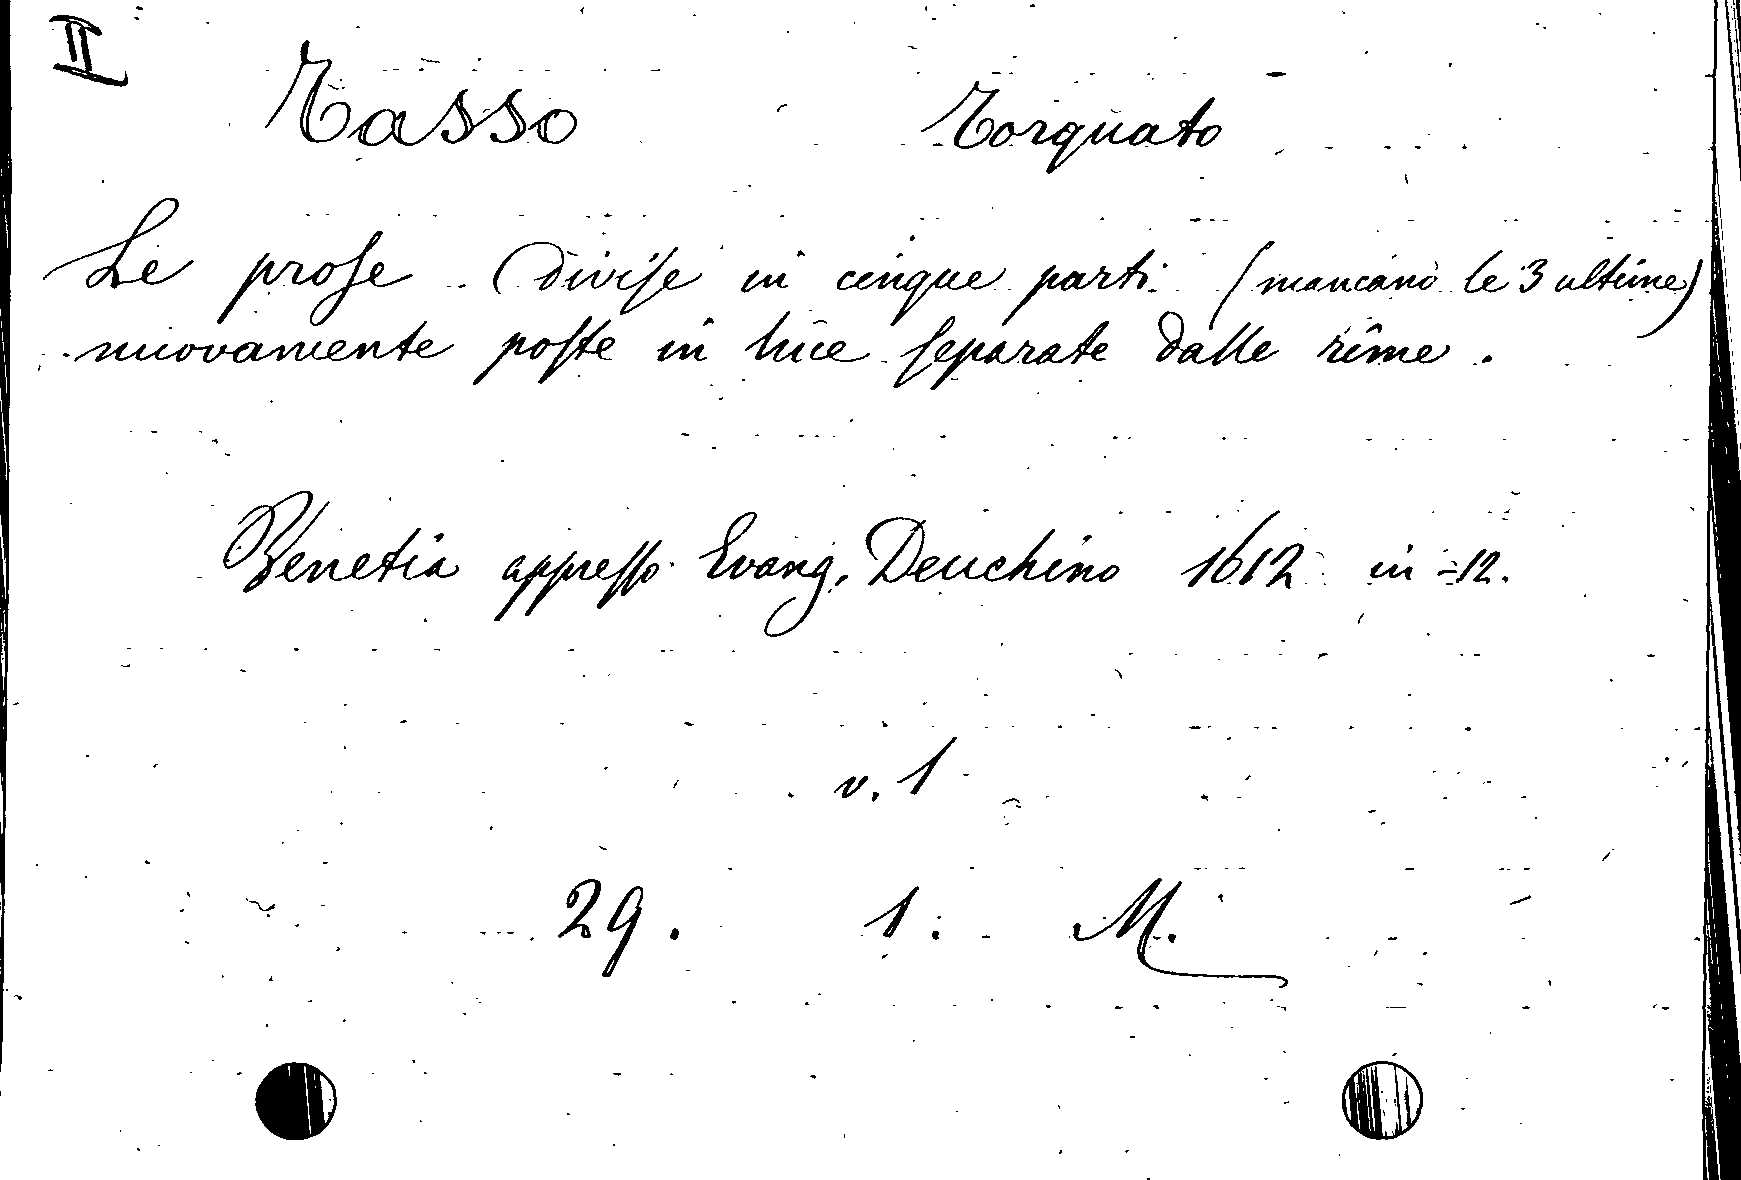 II
Tasso Torquato
Le prose divise in cinque parti (mancano le 3 ultime)
nuovamente poste in luce separate dalle rime.
Venetia appresso Evang. Deuchino 1612 in -12.
v. 1
29. 1. M.